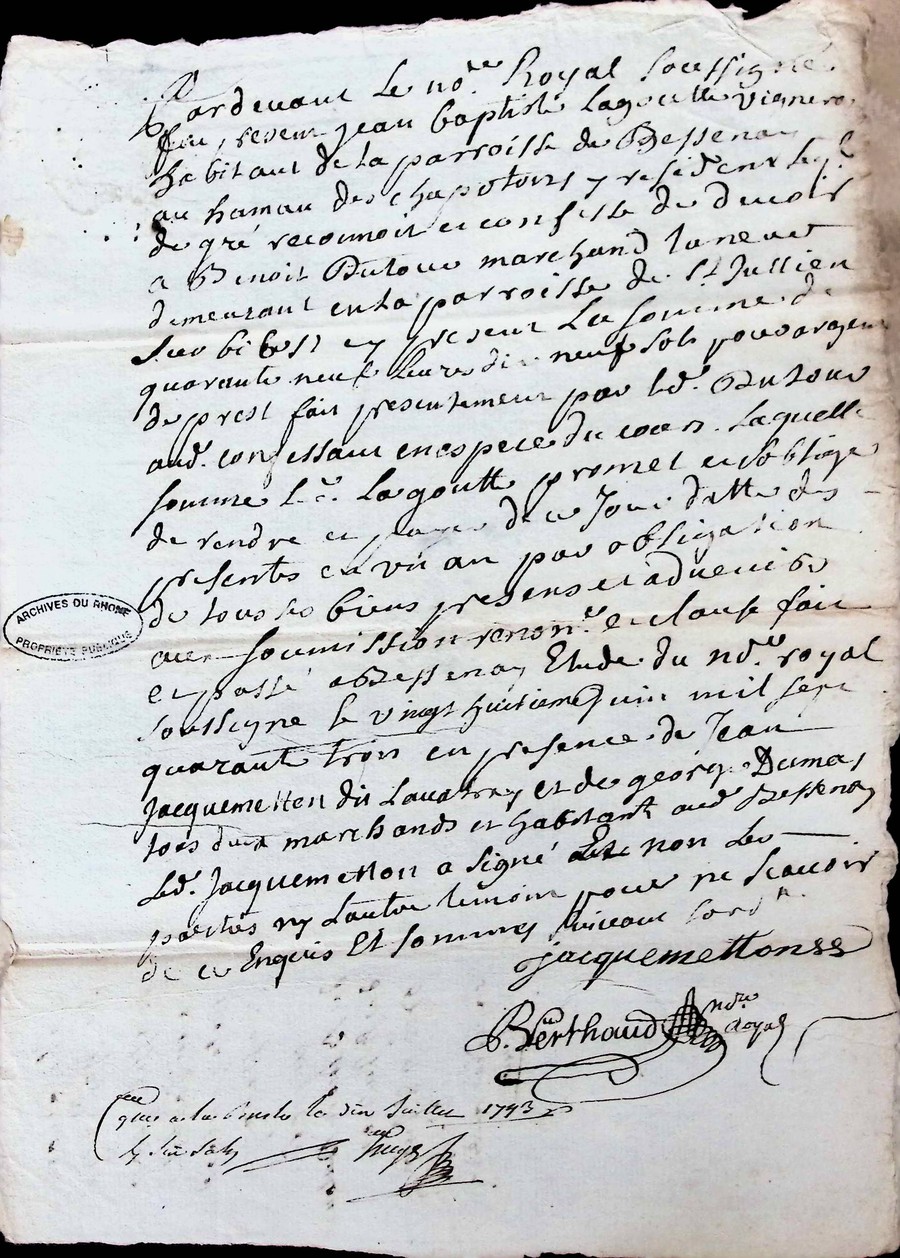 Pardevant Le no.re Royal Soussigné
fut present jean baptiste Lagoutte vigneron
habitant de la parroisse de Bessenay
au hamau des chapotons y resident leql
de gré reconnoit et confesse de devoir
a Benoit Dutour marchand taneur
demeurant en la parroisse de St Jullien
Sur bibost cy present La somme de
quarante neuf livres dix neuf sols pour argent
de prest fait presentement par led. Dutour
aud. confessant en espece du cours. Laquelle
somme L.d. Lagoutte promet et soblige
de rendre et payer de ce Jour datte des
presentes en un an par obligation
de tous ses biens presens et advenir
avec soumission renon.on et clause fait
et passé a Bessenay Etude du no.re royal
soussigne le vingt huitieme Juin mil sept
quarante trois en presence de Jean
Jacquemetton dit Lavatray et de george Dumas
tous deux marchands et habitant aud Bessenay
Led. Jacquemetton a signé et non les
parties ny Lautre temoin pour ne Scavoir
de ce Enquis Et sommes suivant Lord.ce
jacquemettonss
Berthaud no.re Royal
a la le dix Juillet 1743
ARCHIVES DU RHONE
PROPRIETE PUBLIQUE